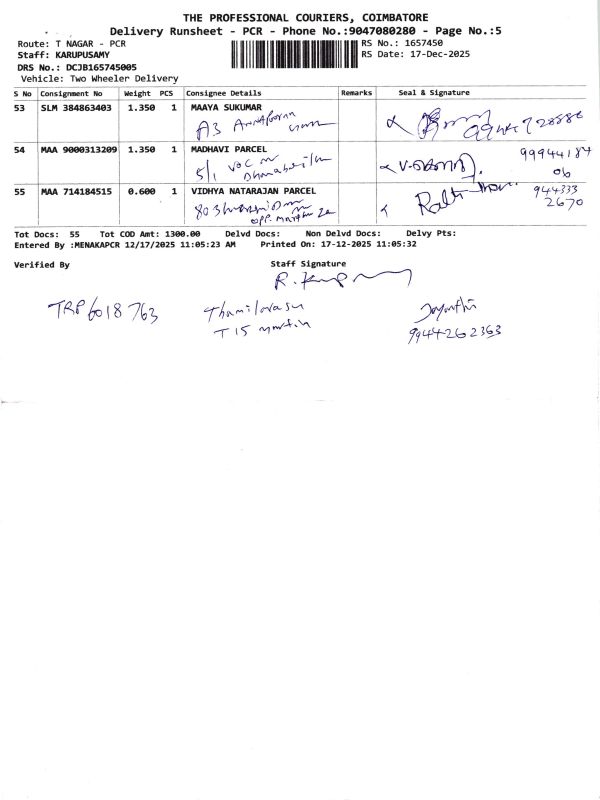 THE PROFESSIONAL COURIERS, COIMBATORE
Delivery Runsheet - PCR - Phone No.:9047080280 - Page No.:5
Route: T NAGAR - PCR RS No.: 1657450
Staff: KARUPUSAMY RS Date: 17-Dec-2025
DRS No.: DCJB165745005
Vehicle: Two Wheeler Delivery
S No Consignment No Weight PCS Consignee Details Remarks Seal & Signature
53 SLM 384863403 1.350 1 MAAYA SUKUMAR
A3 Annapoorna
54 MAA 9000313209 1.350 1 MADHAVI PARCEL 99944184
5/1 VOC 06
55 MAA 714184515 0.600 1 VIDHYA NATARAJAN PARCEL 944333
2670
opp.
Tot Docs: 55 Tot COD Amt: 1300.00 Delvd Docs: Non Delvd Docs: Delvy Pts:
Entered By :MENAKAPCR 12/17/2025 11:05:23 AM Printed On: 17-12-2025 11:05:32
Verified By Staff Signature
TRP6018763 Thamilarasu Jayanthi
T 15 martin 9944262363